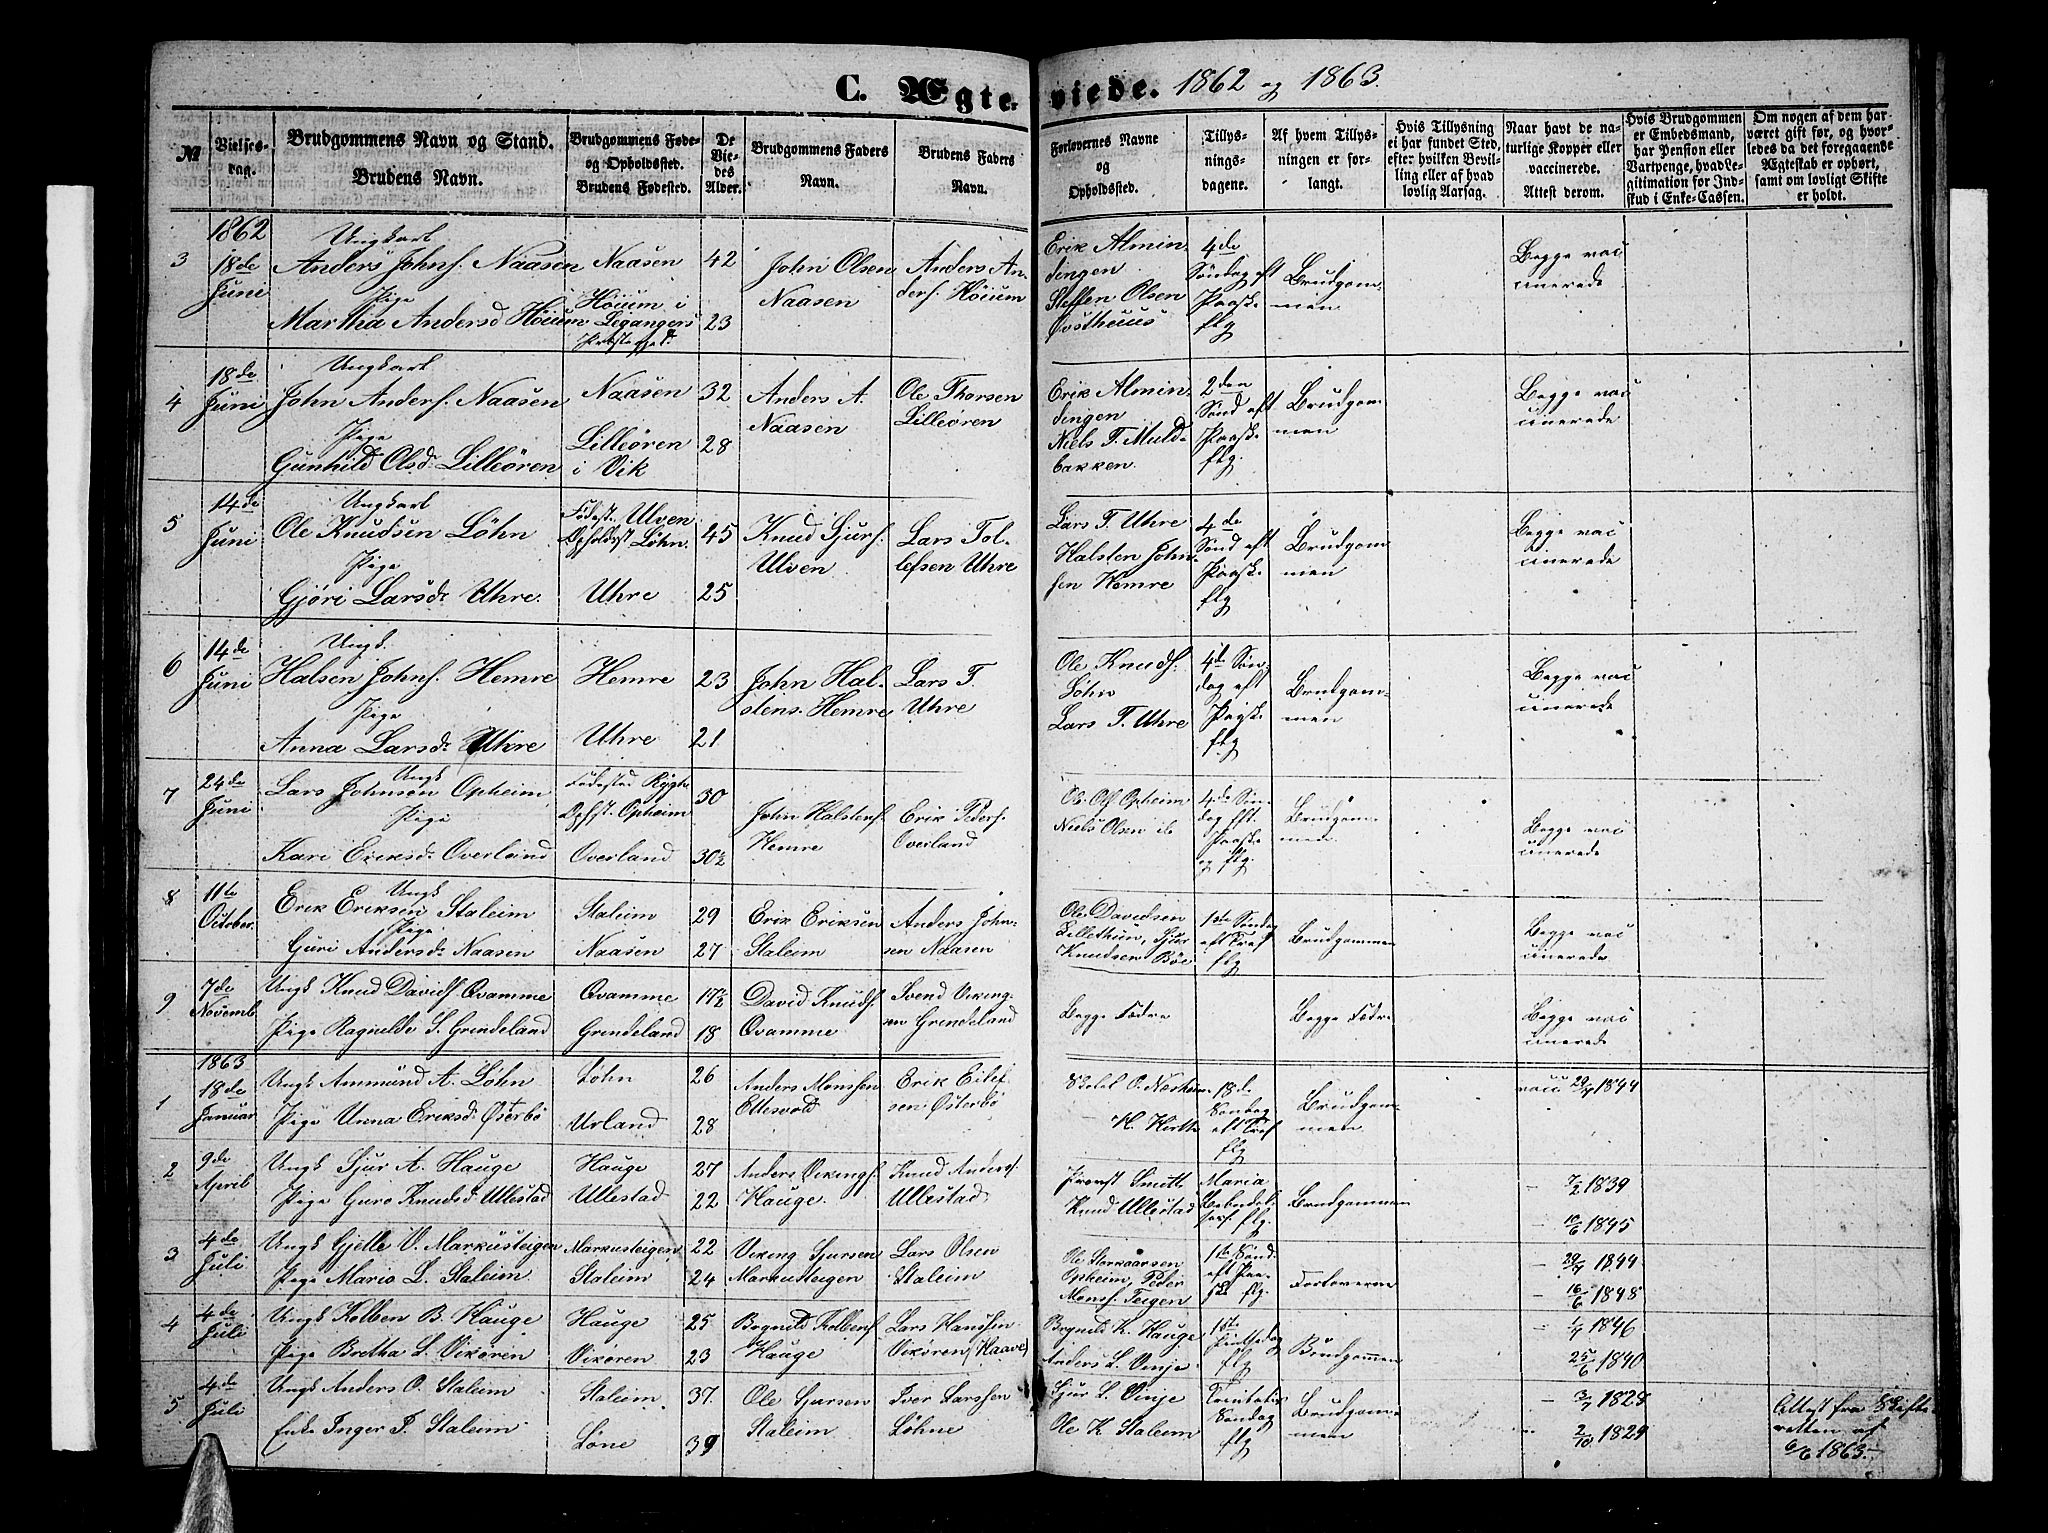 C. Ægte-
viede. 1862 og 1863.
№
Vielses-
dag.
Brudgommens Navn og Stand.
Brudens Navn.
Brudgommens Føde-
og Opholdssted.
Brudens Fødested.
De
Vie-
des
Alder.
Brudgommens Faders
Navn.
Brudens Faders
Navn.
Forlovernes Navne
og
Opholdssted.
Tillys-
nings-
dagene.
Af hvem Tillys-
ningen er for-
langt.
Hvis Tillysning
ei har fundet Sted,
efter hvilken Bevil-
ling eller af hvad
lovlig Aarsag.
Naar havt de na-
turlige Kopper eller
vaccinerede.
Attest derom.
Hvis Brudgommen
er Embedsmand,
har Pension eller
Vartpenge, hvad Le-
gitimation for Ind-
skud i Enke-Cassen.
Om nogen af dem har
været gift før, og hvor-
ledes da det foregaaende
Ægteskab er ophørt,
samt om lovligt Skifte
er holdt.
1862
3
18de
Juni
Ungkarl
Anders Johns. Naasen
Pige
Martha Andersd Höium
Naasen
Höium i
Leganger
Præstegjed.
42
23
John Olsen
Naasen
Anders An-
ders. Höium
Erik Almin
dingen
Steffen Olsen
Østhuus
4de
Søndag eft
Paaske
flg
Brudgom-
men
Begge vac
cinerede
4
18de
Juni
Ungkarl
John Anders. Naasen
Pige
Gunhild Olsd. Lilleören
Naasen
Lilleören
i Vik
32
28
Anders A.
Naasen
Ole Thorsen
Lilleören
Erik Almin
dingen
Niels T. Muld-
bakken.
2den
Sønd eft
Paaske
flg.
Brudgom-
men
Begge vac
cinerede
5
14de
Juni
Ungkarl
Ole Knudsen Löhn
Pige
Gjöri Larsd. Uhre.
Födest. Ulven
Opholdsst Löhn.
Uhre
45
25
Knud Sjurs.
Ulven
Lars Tol-
lefsen Uhre
Lars T. Uhre
Halsten John-
sen Hemre
4de
Sønd eft
Paaske
flg
Brudgom
men
Begge vac
cinerede
6
14de
Juni
Ungk.
Halsen Johns. Hemre
Pige
Anna Larsd. Uhre
Hemre
Uhre
23
21
John Hal-
stens. Hemre
Lars T.
Uhre
Ole Knuds.
Löhn
Lars T. Uhre
4de Søn-
dag eft
Paaske
flg
Brudgom-
men
Begge vac
cinerede
7
24de
Juni
Ungk
Lars Johnsen Opheim
Pige
Kari Eriksd. Overland
Födested Rygh
Ophst. Opheim
Overland
30
30½
John Halstens.
Hemre
Erik Peders.
Overland
Ole Ols. Opheim
Niels Olsen ib
4de Søn-
dag eft.
Paaske
og flg.
Brudgom-
men.
Begge vac
cinerede
8
11te
October.
Ungk
Erik Eriksen Staleim
Pige
Guri Andersd. Naasen
Staleim
Naasen
29
27
Erik Eriksen
Staleim
Anders John-
sen Naasen
Ole Davidsen
Lillethun, Sjur
Knudsen Böe
1ste Søndag
eft Tref
flg
Brudgommen
Begge vac
cinerede
9
7de
Novemb
Ungk Knud Davids. Qvamme
Pige Ragnilde S. Grindeland
Qvamme
Grendeland
19½
18
David Knuds.
Qvamme
Svend Viking-
sen Grindeland
Begge Fædre
Begge Fædre
Begge vac
cinerede
1863
1
18de
Januar
Ungk Ammund A. Löhn
Pige Unna Eriksd. Österbö
Löhn
Urland
26
28
Anders Monssen
Ellesvold
Erik Eilef-
sen Österbö
H. Hirth
18de
Søndag
eft Tref
flg
Brudgom-
men
vacc 29/9 1844
2
9de
April
Ungk Sjur A. Hauge
Pige Guro Knudsd. Ullestad
Hauge
Ullestad
27
22
Anders Vikings.
Hauge.
Knud Anders.
Ullestad
Provst Smitt
Knud Ullestad
Maria
Bebudel-
ses. flg.
Brudgommen
- 7/2 1839
- 10/6 1845
3
4de
Juli
Ungk Gjelle V. Markusteigen
Pige Mario L. Staleim
Markusteigen
Staleim
22
24
Viking Sjursen
Markusteigen
Lars Olsen
Staleim
Ole Storkaarsen
Opheim, Peder
Mons. Teigen
1ste Sønd.
eft Paa-
ske flg.
Forloverne
- 29/9 1844
- 16/6 1848
4
4de
Juli
Ungk Kolben B. Hauge
Pige Bretha L. Vikören
Hauge
Vikören
25
23
Bognild Kolbens.
Hauge
Lars Hanssen
Vikören (Haave)
Bognild K. Hauge
Anders L. Vinje
1ste
Pintsedag
flg
Brudgommen
- 1/7 1846
- 25/6 1840
5
4de
Juli
Ungk Anders O. Staleim
Enke Inger I. Staleim
Staleim.
Löne
37.
39
Ole Sjursen
Staleim
Iver Larssen
Löhne
Sjur L. Vinje
Ole K Staleim
Trinitatis
Søndag
flg
Brudgom-
men
- 3/7 1828
- 2/10 1829
Attest fra Skifte-
retten af
6/6 1863.